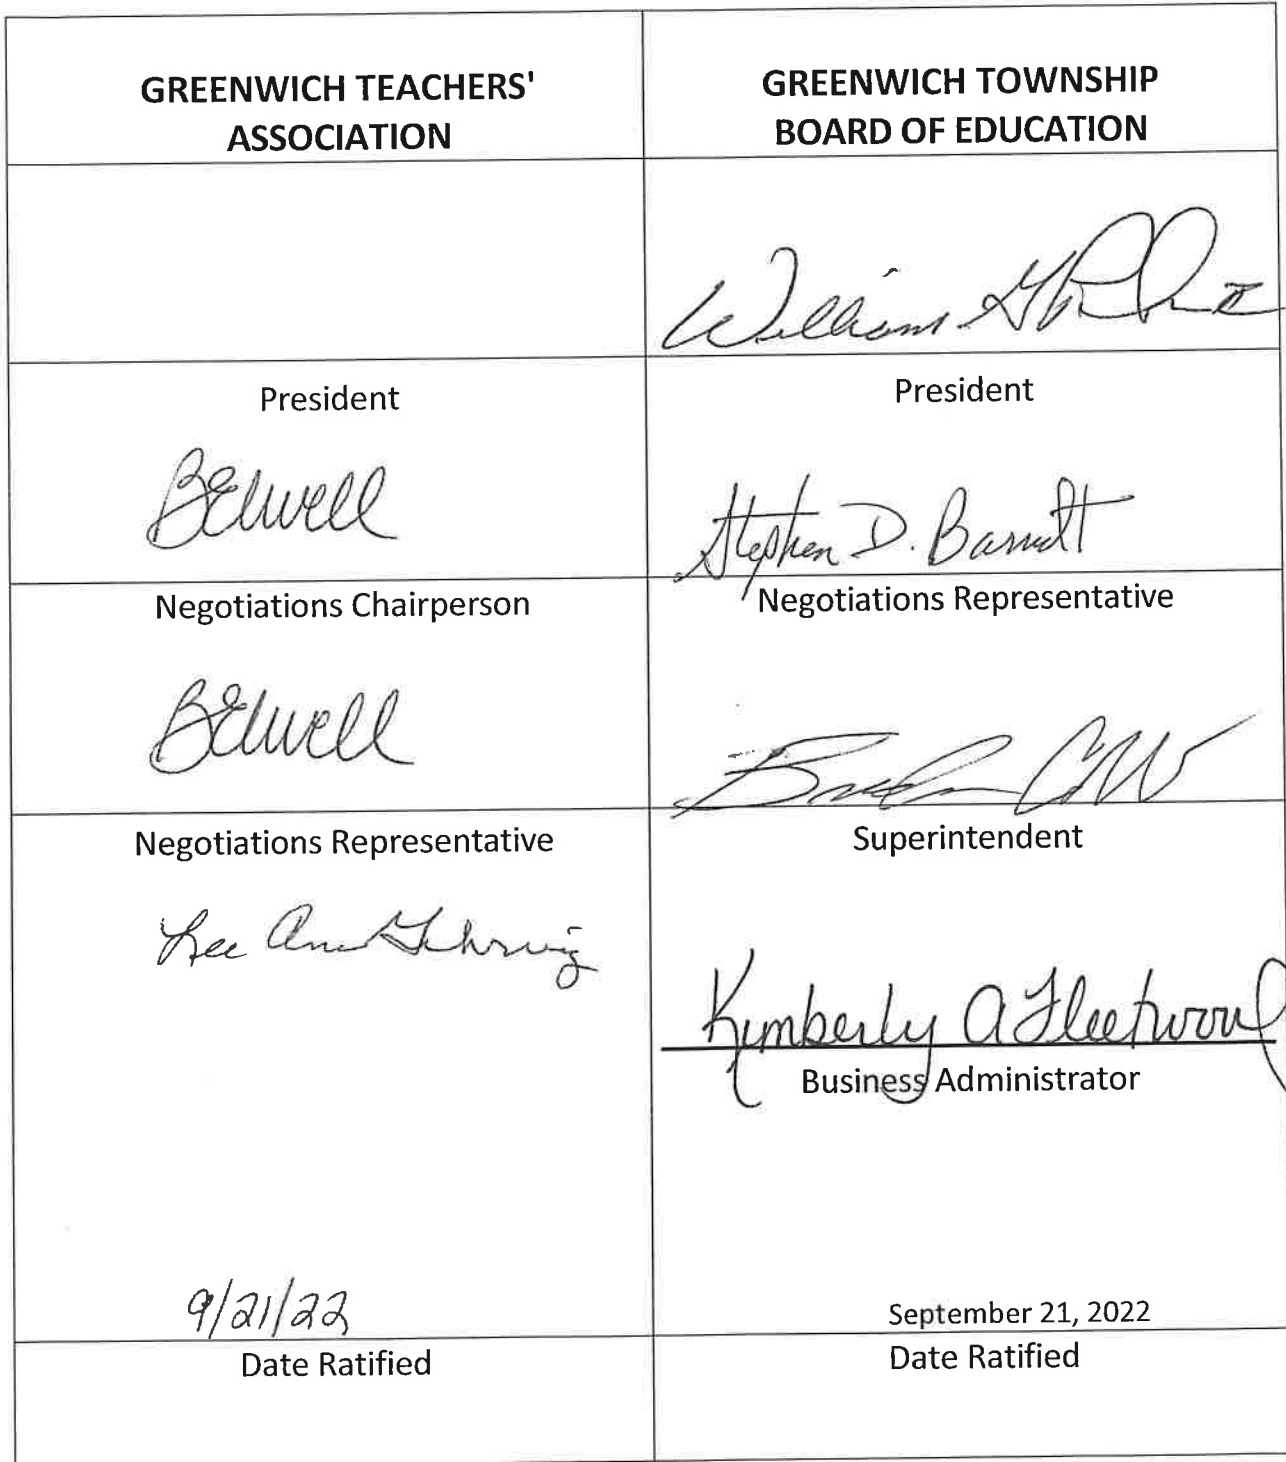 GREENWICH TEACHERS'
ASSOCIATION
GREENWICH TOWNSHIP
BOARD OF EDUCATION
William
President
President
BElwell
Stephen D. Barnett
Negotiations Chairperson
Negotiations Representative
BElwell
Negotiations Representative
Superintendent
Lee Ann Gehring
Kimberly A Fleetwood
Business Administrator
9/21/22
September 21, 2022
Date Ratified
Date Ratified